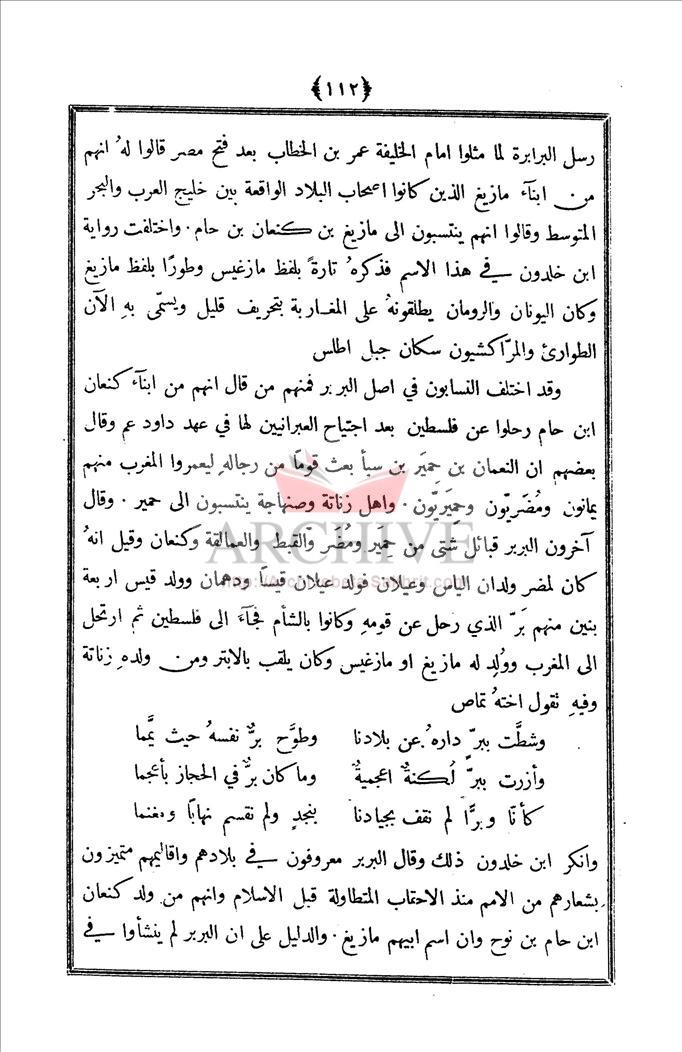 ﴿١١٢﴾
رسل البرابرة لما مثلوا امام الخليفة عمر بن الخطاب بعد فتح مصر قالوا لهُ انهم
من ابنآء مازيغ الذين كانوا اصحاب البلاد الواقعة بين خليج العرب والبحر
المتوسط وقالوا انهم ينتسبون الى مازيغ بن كنعان بن حام . واختلفت رواية
ابن خلدون في هذا الاسم فذكرهُ تارةً بلفظ مازغيس وطورًا بلفظ مازيغ
وكان اليونان والرومان يطلقونهُ على المغاربة بتحريف قليل ويسمّى بهِ الآن
الطوارئ والمرّاكشيون سكان جبل اطلس
وقد اختلف النسابون في اصل البربر فمنهم من قال انهم من ابنآء كنعان
ابن حام رحلوا عن فلسطين بعد اجتياح العبرانيين لها في عهد داود عم وقال
بعضهم ان النعمان بن حِميَر بن سبأ بعث قومًا من رجالهِ ليعمروا المغرب منهم
يمانون ومُضَريّون وحِميَريّون . واهل زناتة وصنهاجة ينتسبون الى حمير . وقال
ARCHIVE
آخرون البربر قبائل شتى من حمير ومُضَر والقبط والعمالقة وكنعان وقيل انهُ
كان لمضر ولدان الياس وعيلان فولد عيلان قيسًا ودهمان وولد قيس اربعة
بنين منهم بَرّ الذي رحل عن قومهِ وكانوا بالشأم فجآء الى فلسطين ثم ارتحل
الى المغرب ووُلِد له مازيغ او مازغيس وكان يلقب بالابتر ومن ولدهِ زناتة
وفيهِ تقول اختهُ تماص
وشطَّت ببرٍّ دارهُ عن بلادنا وطوَّح برٌّ نفسهُ حيث يمَّما
وأزرت ببرٍّ لُكنةٌ اعجميةٌ وما كان برٌّ في الحجاز بأعجما
كأنّا وبرًّا لم نقف بجيادنا بنجدٍ ولم نقسم نهابًا ومغنما
وانكر ابن خلدون ذلك وقال البربر معروفون في بلادهم واقاليمهم متميزون
بشعارهم من الامم منذ الاحقاب المتطاولة قبل الاسلام وانهم من ولد كنعان
ابن حام بن نوح وان اسم ابيهم مازيغ . والدليل على ان البربر لم ينشأوا في